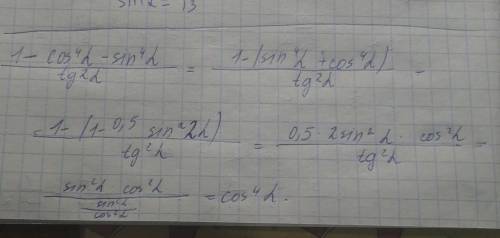 sin α = 13
1 - cos⁴α - sin⁴α / tg²α = 1 - (sin⁴α + cos⁴α) / tg²α =
= 1 - (1 - 0,5 sin²2α) / tg²α = 0,5 · 2sin²α · cos²α / tg²α =
sin²α cos²α / sin²α / cos²α = cos⁴α.